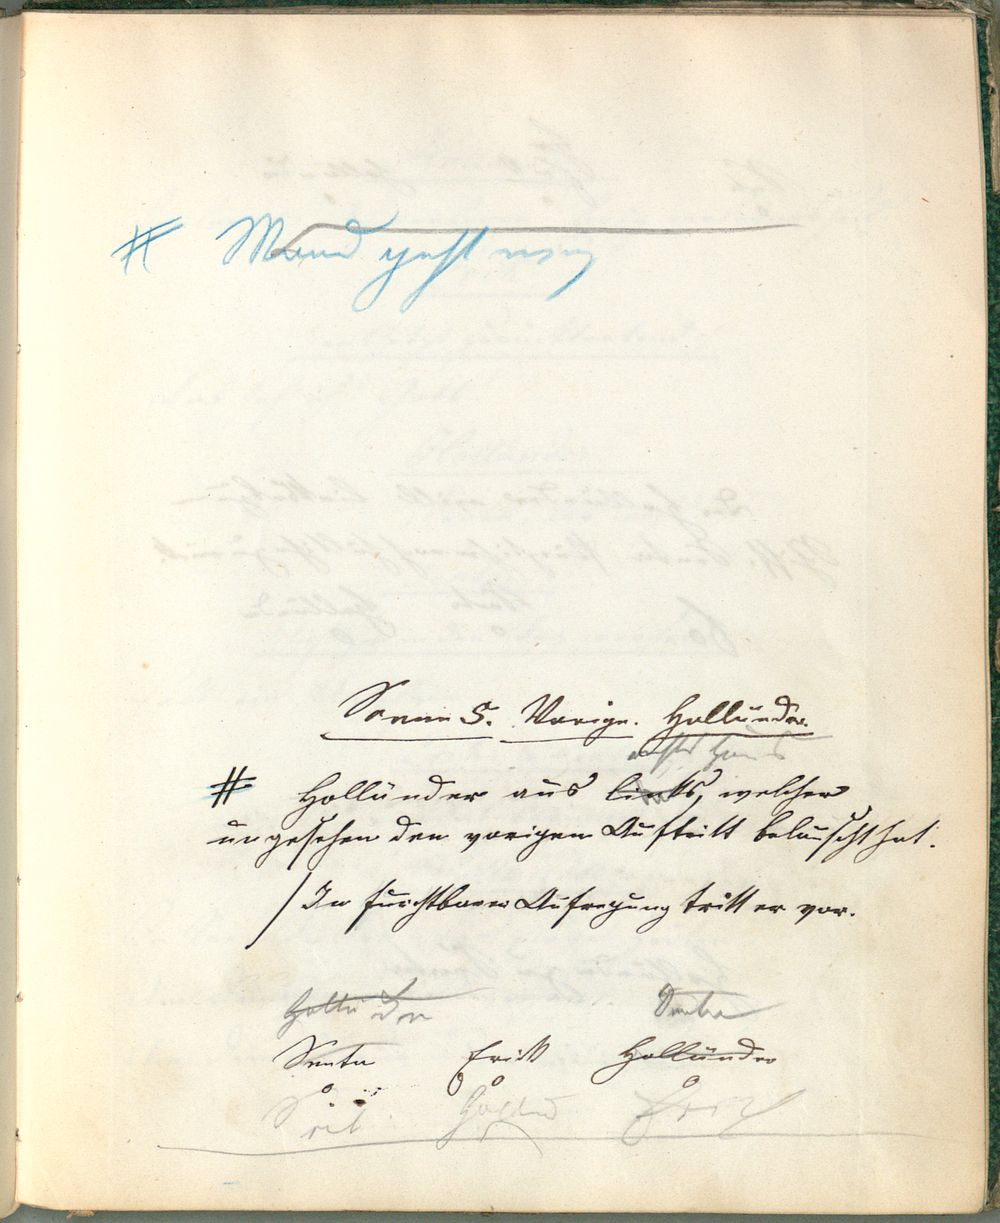 # Mond geht weg
Scene 5. Vorige. Holländer.
# Holländer aus links, welcher
ungesehen den vorigen Auftritt belauscht hat.
/ In furchtbarer Aufregung tritt er vor.
Holländer Senta
Senta Erik Holländer